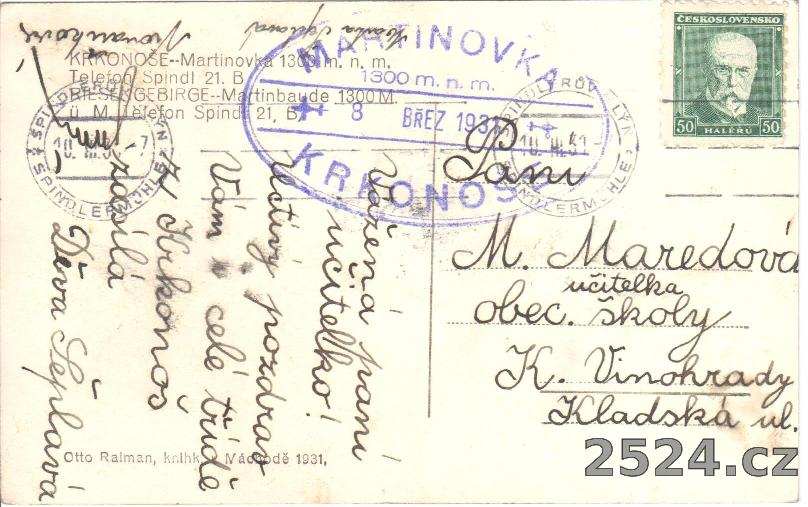 KRKONOŠE--Martinovka 1300 m. n. m.
Telefon Špindl 21. B
RIESENGEBIRGE--Martinbaude 1300 M.
ü. M. Telefon Spindl 21, B.
MARTINOVKA
1300 m. n. m.
8 BŘEZ 1931
KRKONOŠE
ŠPINDLERŮV MLÝN
10. III. 31 -7
SPINDLERMÜHLE
ŠPINDLERŮV MLÝN
10. III. 31
SPINDLERMÜHLE
ČESKOSLOVENSKO
50 HALÉŘŮ 50
Vážená paní
učitelko!
Uctivý pozdrav
Vám i celé třídě
z Krkonoš
zasílá
Děva Šeplavá
Paní
M. Maredová
učitelka
obec. školy
K. Vinohrady
Kladská ul.
Otto Raiman, knihk. v Náchodě 1931,
2524.cz